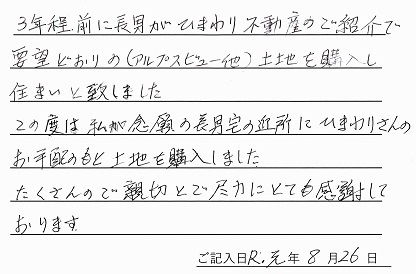 3年程前に長男がひまわり不動産のご紹介で
要望どおりの(アルプスビュー他)土地を購入し
住まいと致しました
この度は私が念願の長男宅の近所にひまわりさんの
お手配のもと土地を購入しました
たくさんのご親切とご尽力にとても感謝して
おります
ご記入日R.元年8月26日